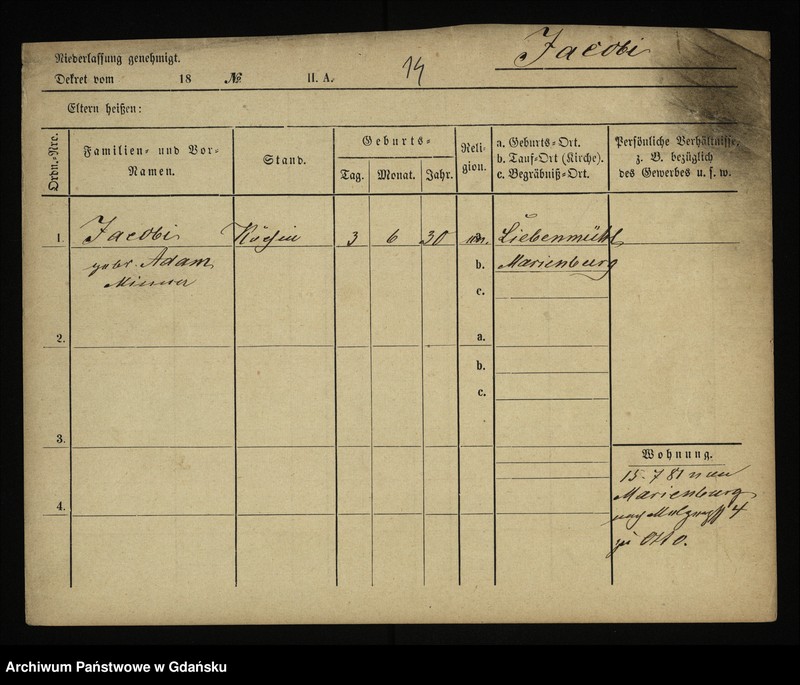 Jacobi
Niederlassung genehmigt.
Dekret vom 18 № II. A. 14
Eltern heißen:
Ordn.-Nro.
Familien- und Vor-
Namen.
Stand.
Geburts-
Tag. Monat. Jahr.
Reli-
gion.
a. Geburts-Ort.
b. Tauf-Ort (Kirche).
c. Begräbniß-Ort.
Persönliche Verhältnisse,
z. B. bezüglich
des Gewerbes u. s. w.
1. Jacobi Köchin 3 6 30 a. Liebenmühl
gebr. Adam b. Marienburg
c.
2. a.
b.
c.
3.
Wohnung.
15.7 81 von
Marienburg
4. nach 4
zu Otto.
Archiwum Państwowe w Gdańsku